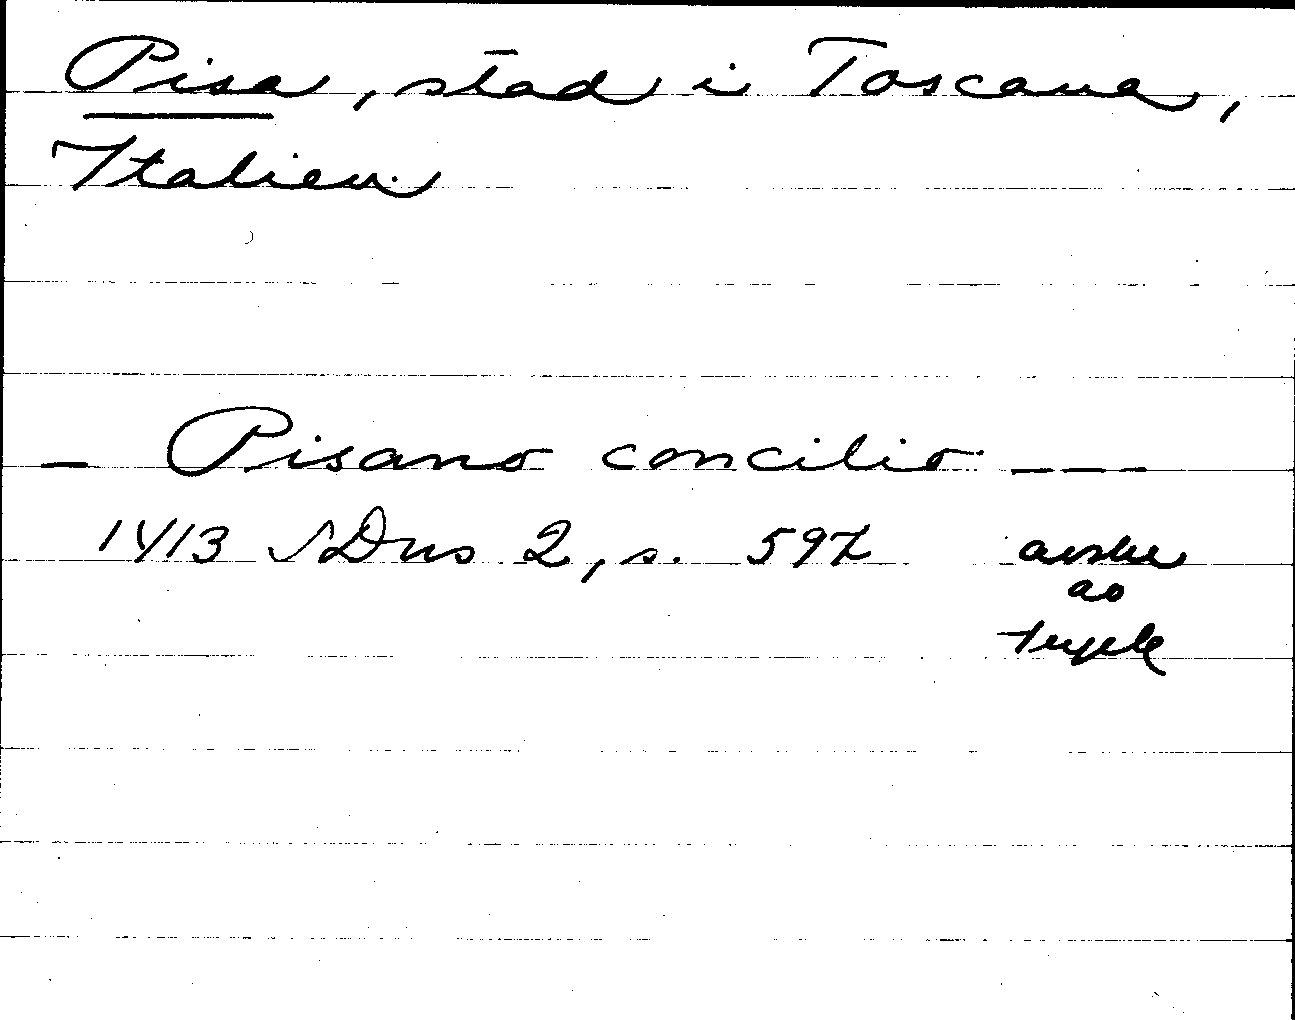 Pisa, stad i Toscana,
Italien.
— Pisano concilio — — —
1413 SDns 2, s. 597 avskr
ao
tryck